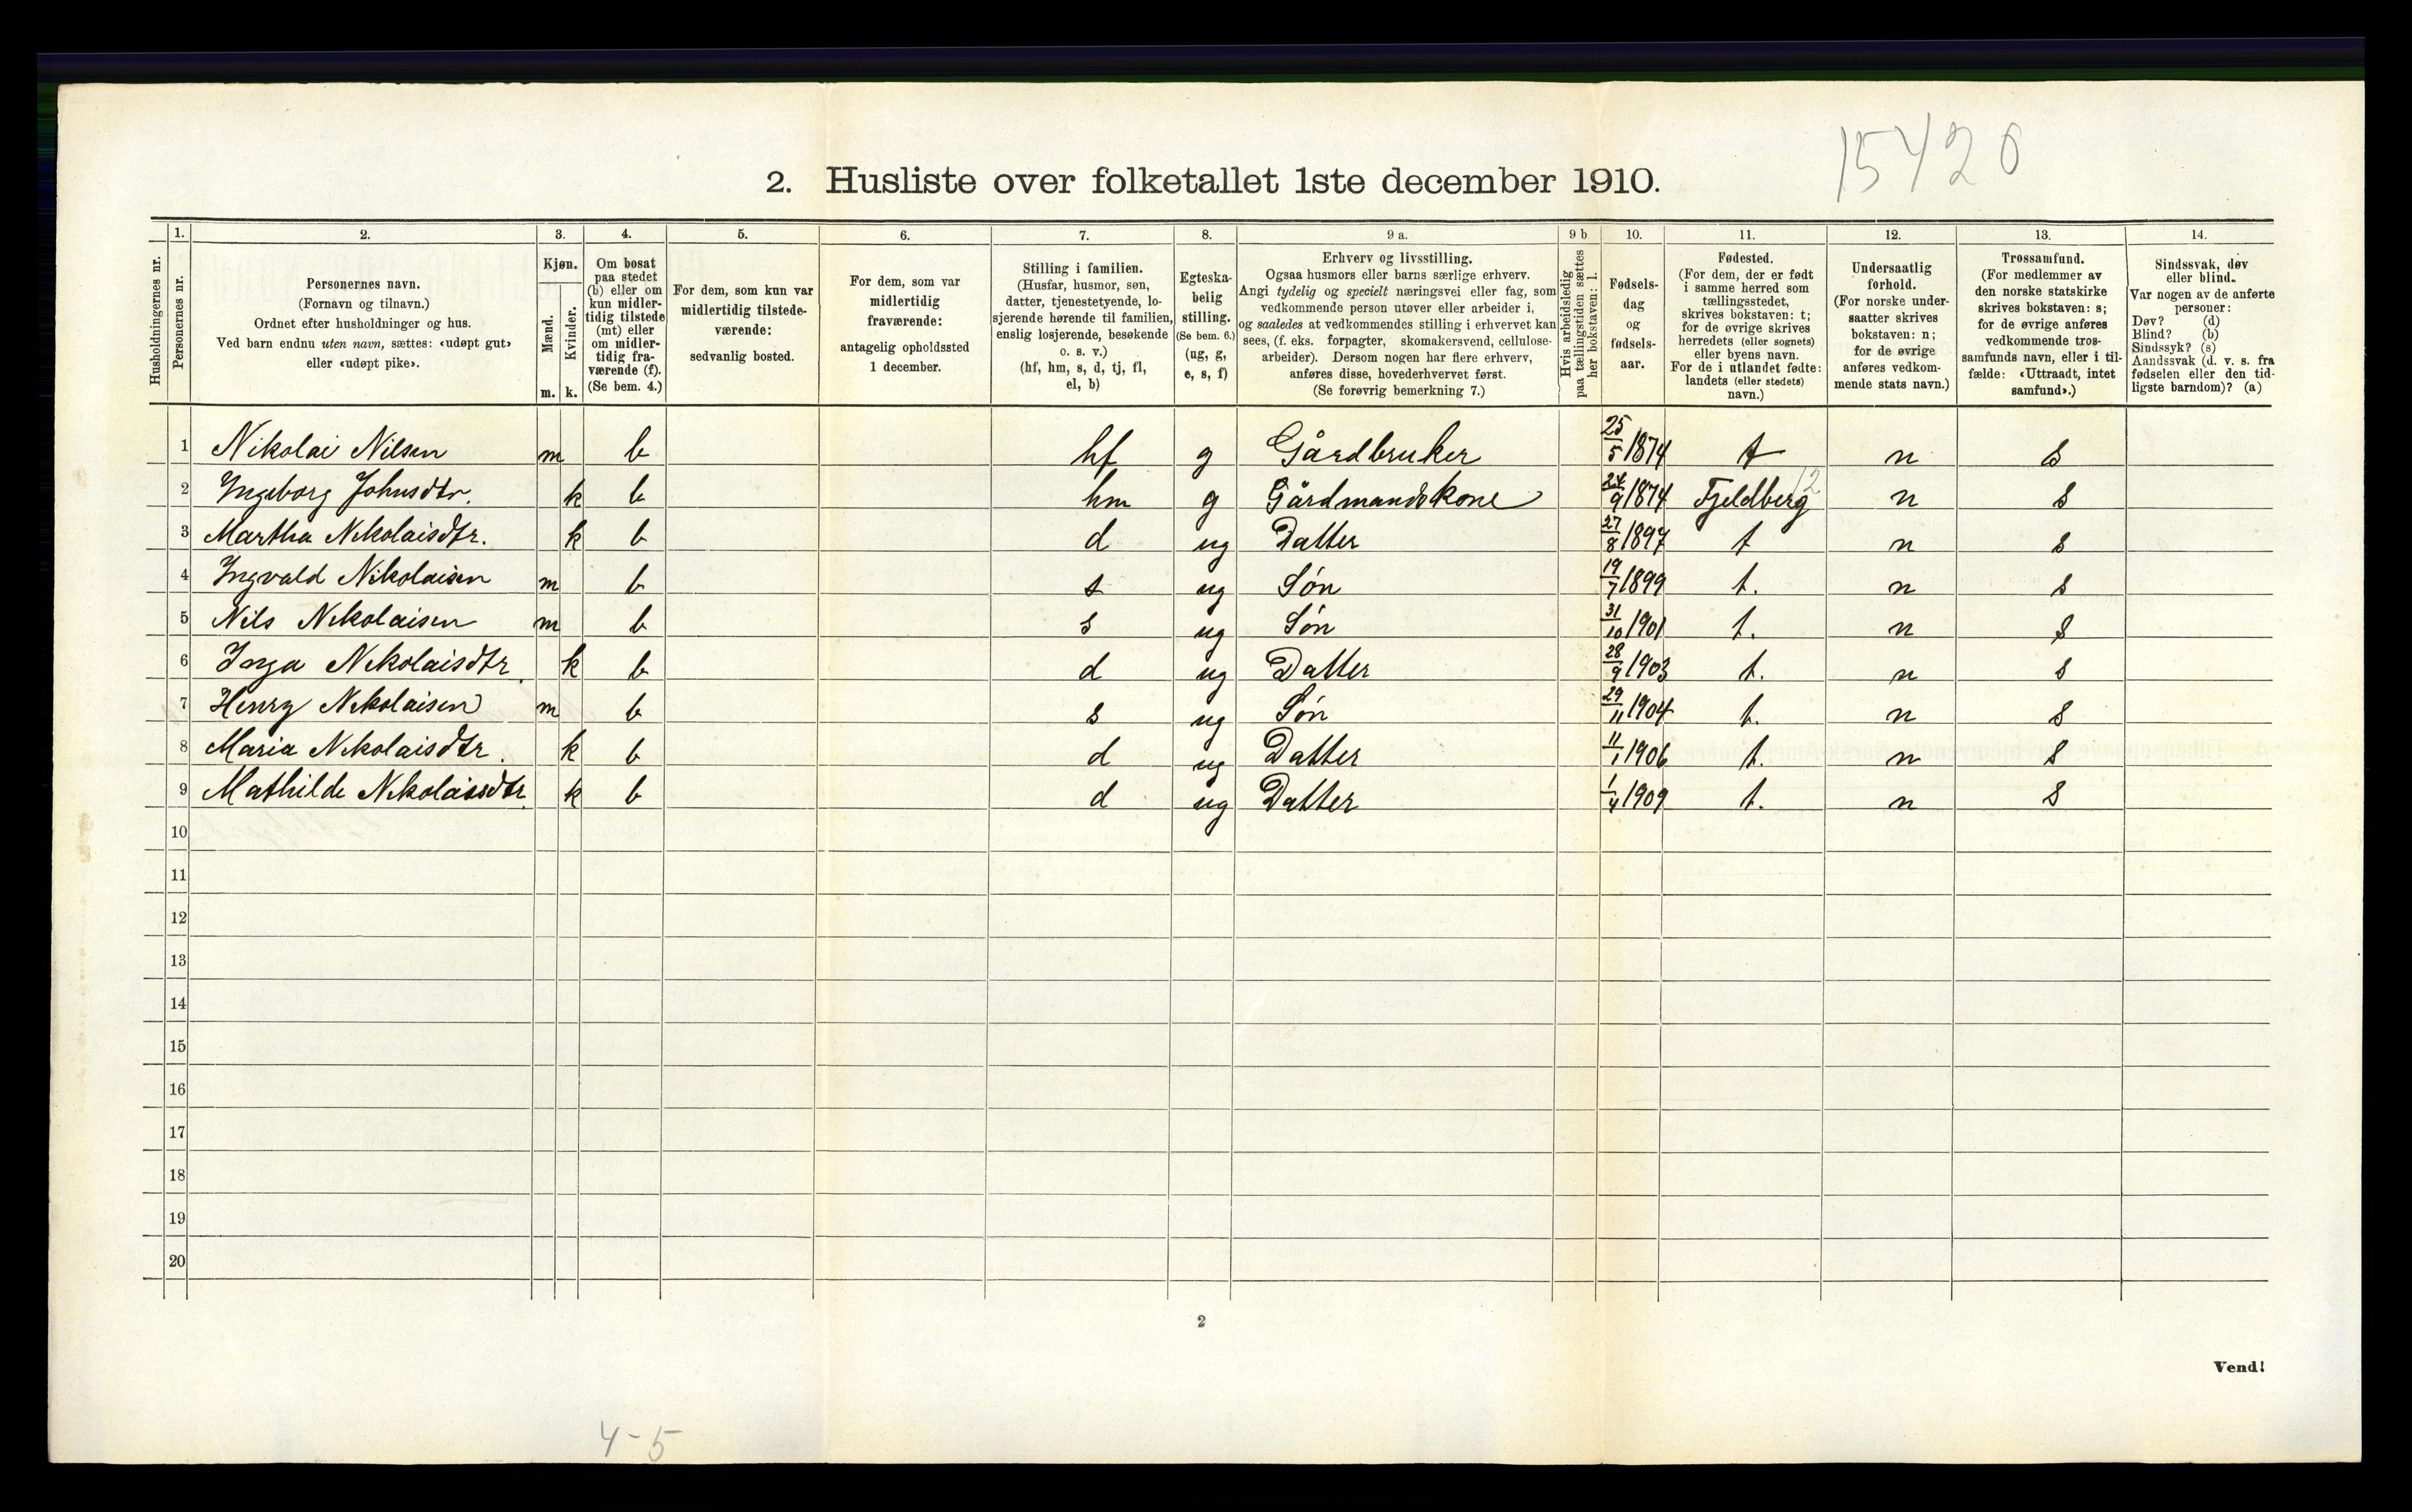 15420
2. Husliste over folketallet 1ste december 1910.
Husholdningernes nr.
1.
Personernes nr.
2.
Personernes navn.
(Fornavn og tilnavn.)
Ordnet efter husholdninger og hus.
Ved barn endnu uten navn, sættes: «udøpt gut»
eller «udøpt pike».
3.
Kjøn.
Mænd.
m.
Kvinder.
k.
4.
Om bosat
paa stedet
(b) eller om
kun midler-
tidig tilstede
(mt) eller
om midler-
tidig fra-
værende (f).
(Se bem. 4.)
5.
For dem, som kun var
midlertidig tilstede-
værende:
sedvanlig bosted.
6.
For dem, som var
midlertidig
fraværende:
antagelig opholdssted
1 december.
7.
Stilling i familien.
(Husfar, husmor, søn,
datter, tjenestetyende, lo-
sjerende hørende til familien,
enslig losjerende, besøkende
o. s. v.)
(hf, hm, s, d, tj, fl,
el, b)
8.
Egteska-
belig
stilling.
(Se bem. 6.)
(ug, g,
e, s, f)
9 a.
Erhverv og livsstilling.
Ogsaa husmors eller barns særlige erhverv.
Angi tydelig og specielt næringsvei eller fag, som
vedkommende person utøver eller arbeider i,
og saaledes at vedkommendes stilling i erhvervet kan
sees, (f. eks. forpagter, skomakersvend, cellulose-
arbeider). Dersom nogen har flere erhverv,
anføres disse, hovederhvervet først.
(Se forøvrig bemerkning 7.)
9 b
Hvis arbeidsledig
paa tællingstiden sættes
her bokstaven: l.
10.
Fødsels-
dag
og
fødsels-
aar.
11.
Fødested.
(For dem, der er født
i samme herred som
tællingsstedet,
skrives bokstaven: t;
for de øvrige skrives
herredets (eller sognets)
eller byens navn.
For de i utlandet fødte:
landets (eller stedets)
navn.)
12.
Undersaatlig
forhold.
(For norske under-
saatter skrives
bokstaven: n;
for de øvrige
anføres vedkom-
mende stats navn.)
13.
Trossamfund.
(For medlemmer av
den norske statskirke
skrives bokstaven: s;
for de øvrige anføres
vedkommende tros-
samfunds navn, eller i til-
fælde: «Uttraadt, intet
samfund».)
14.
Sindssvak, døv
eller blind.
Var nogen av de anførte
personer:
Døv? (d)
Blind? (b)
Sindssyk? (s)
Aandssvak (d. v. s. fra
fødselen eller den tid-
ligste barndom)? (a)
1 Nikolai Nilsen m b hf g Gårdbruker 25/5 1874 t n s
2 Ingeborg Johnsdtr. k b hm g Gårdmandskone 24/9 1874 Fjeldberg 12 n s
3 Martha Nikolaisdtr. k b d ug Datter 27/8 1897 t n s
4 Ingvald Nikolaisen m b s ug Søn 19/7 1899 t. n s
5 Nils Nikolaisen m b s ug Søn 31/10 1901 t. n s
6 Inga Nikolaisdtr. k b d ug Datter 28/9 1903 t. n s
7 Henry Nikolaisen m b s ug Søn 29/11 1904 t. n s
8 Maria Nikolaisdtr. k b d ug Datter 11/1 1906 t. n s
9 Mathilde Nikolaisdtr. k b d ug Datter 1/4 1909 t. n s
10
11
12
13
14
15
16
17
18
19
20
2
Vend!
4-5